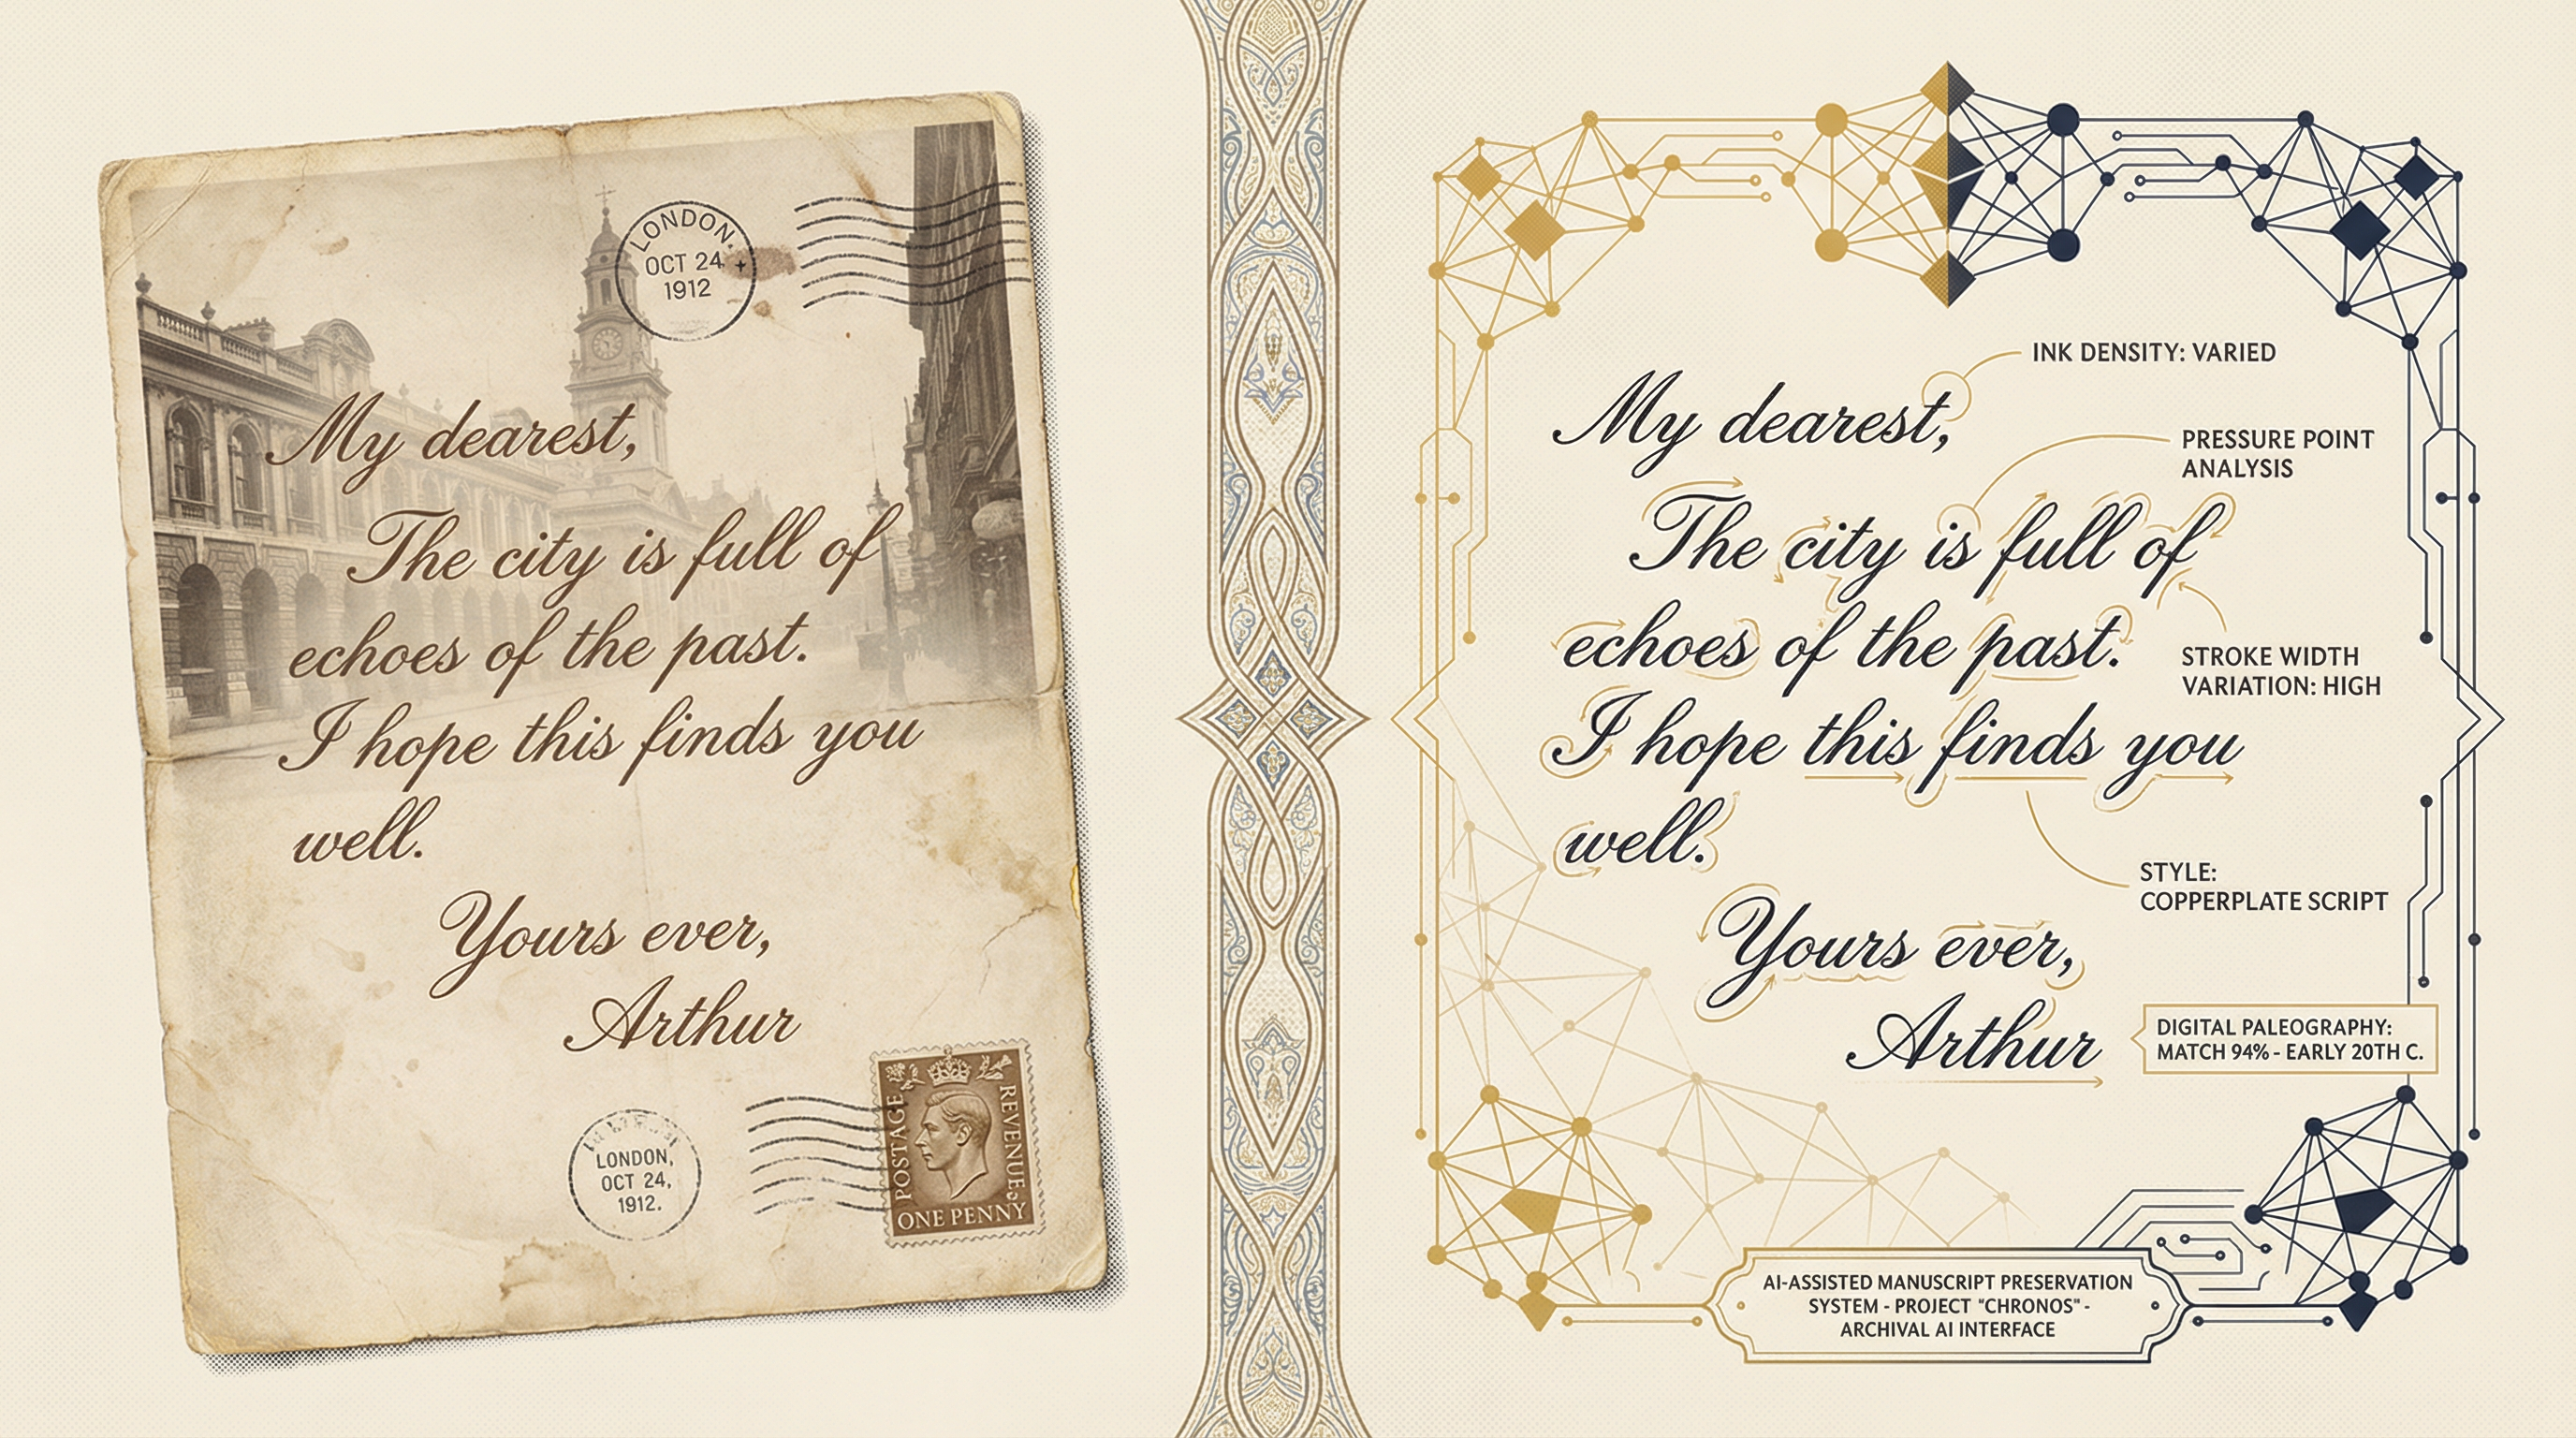 LONDON.
OCT 24
1912
My dearest,
The city is full of
echoes of the past.
I hope this finds you
well.
Yours ever,
Arthur
LONDON,
OCT 24,
1912.
POSTAGE
REVENUE
ONE PENNY
INK DENSITY: VARIED
My dearest,
PRESSURE POINT
ANALYSIS
The city is full of
echoes of the past.
STROKE WIDTH
VARIATION: HIGH
I hope this finds you
well.
STYLE:
COPPERPLATE SCRIPT
Yours ever,
Arthur
DIGITAL PALEOGRAPHY:
MATCH 94% - EARLY 20TH C.
AI-ASSISTED MANUSCRIPT PRESERVATION
SYSTEM - PROJECT "CHRONOS" -
ARCHIVAL AI INTERFACE